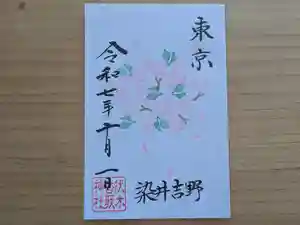 東京
令和七年十月一日
染井吉野